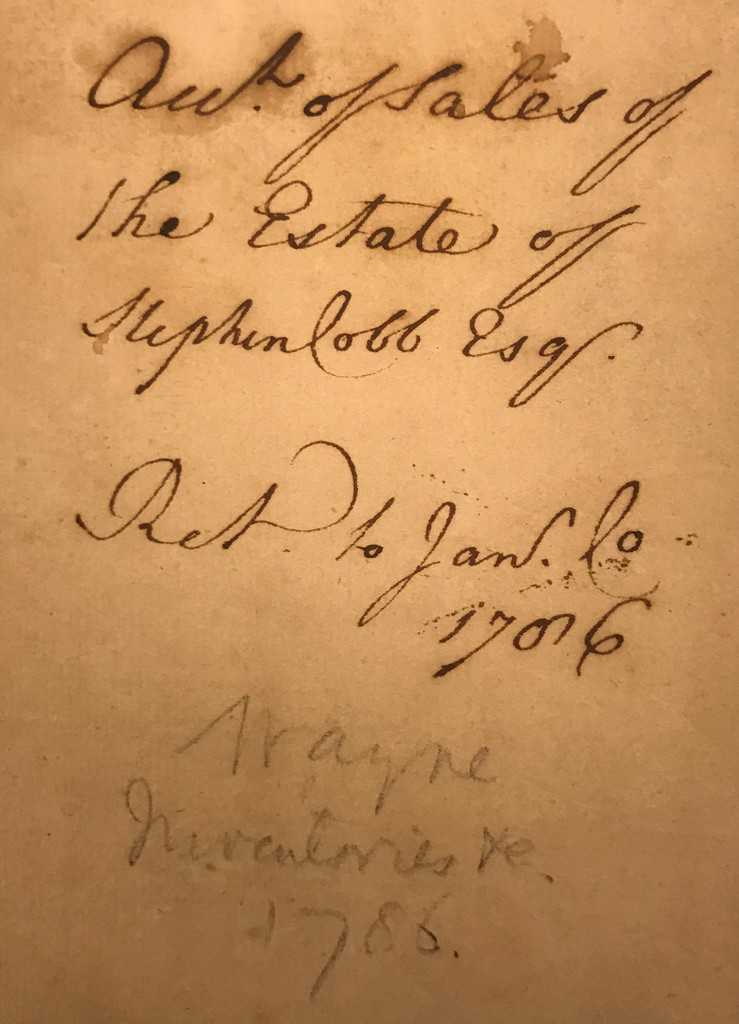 Acct. of Sales of
the Estate of
Stephen Cobb Esqr.
Ret. to Jany. Co
1786
Wayne
Inventories &c.
1786.